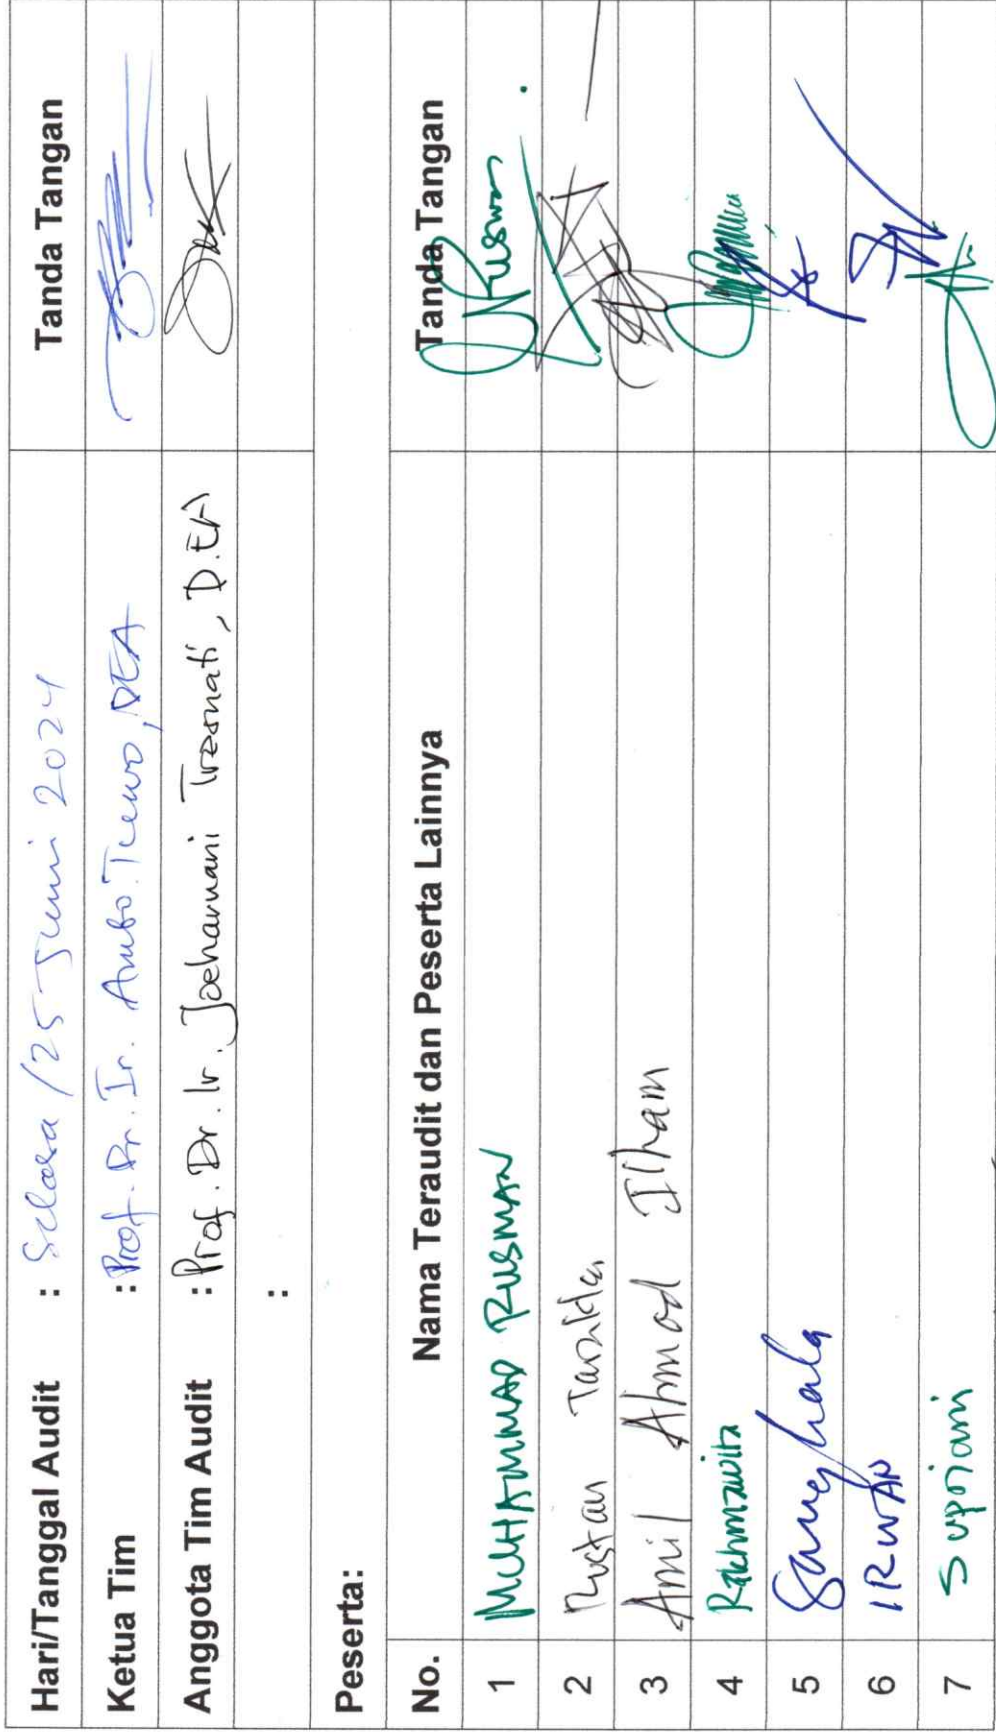 Hari/Tanggal Audit : Selasa / 25 Juni 2024 Tanda Tangan
Ketua Tim : Prof. Dr. Ir. Ambo Tuwo, DEA
Anggota Tim Audit : Prof. Dr. Ir. Joeharnani Tresnati, D.EA
:
Peserta:
No. Nama Teraudit dan Peserta Lainnya Tanda Tangan
1 MUHAMMAD RUSMAN Rusman
2 Rustan Tarakka
3 Amil Ahmad Ilham
4 Rakhmawita
5
6 IRWAN
7 Supriami